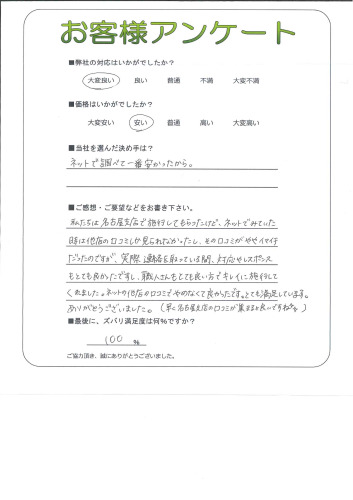 お客様アンケート
■弊社の対応はいかがでしたか？
大変良い 良い 普通 不満 大変不満
■価格はいかがでしたか？
大変安い 安い 普通 高い 大変高い
■当社を選んだ決め手は？
ネットで調べて一番安かったから。
■ご感想・ご要望などをお書き下さい。
私たちは名古屋支店で施行してもらったけど、ネットでみていた
時は他店の口コミしか見られなかったし、その口コミがややイマイチ
だったのですが、実際、連絡を取っている間、対応やレスポンス
もとても良かったですし、職人さんもとても良い方でキレイに施行して
くれました。ネットの他店の口コミでやめなくて良かったです。とても満足しています。
ありがとうございました。(早く名古屋支店の口コミが集まると良いですね。)
■最後に、ズバリ満足度は何％ですか？
100 %
ご協力頂き、誠にありがとうございました。